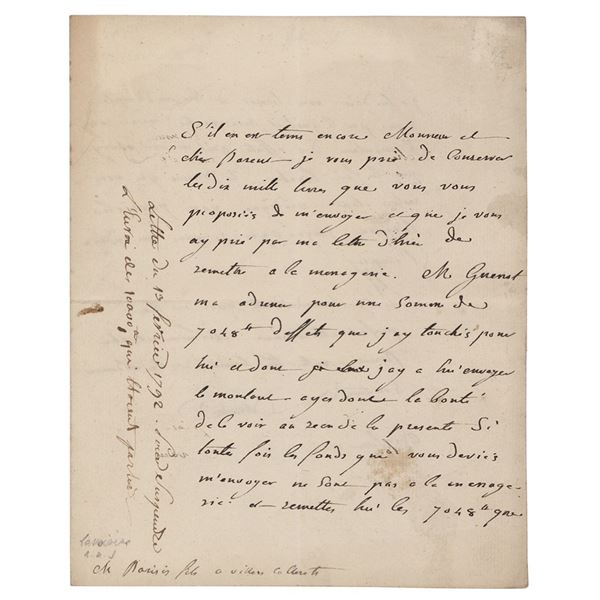 S'il en est tems encore Monsieur et
cher Parent je vous prie de conserver
les dix mille livres que vous vous
proposiés de m'envoyer et que je vous
ay prié par ma lettre d'hier de
remettre a la menagerie. M Guenot
ma adressé pour une somme de
7048ᵗᵗ d'effets que j'ay touchés pour
lui et dont j'ay a lui envoyer
le montant - ayes donc la bonté
de le voir au recu de la presente Si
toutes fois les fonds que vous deviés
m'envoyer ne sont pas a la menage-
rie et remettes lui les 7048ᵗᵗ que
Lettre du 13 fevrier 1792. Suspendre
L'Envoi des 10000ᵗᵗ qui étoient partis
Lavoisier
a.l.s
M Parisis fils a villers cotterets